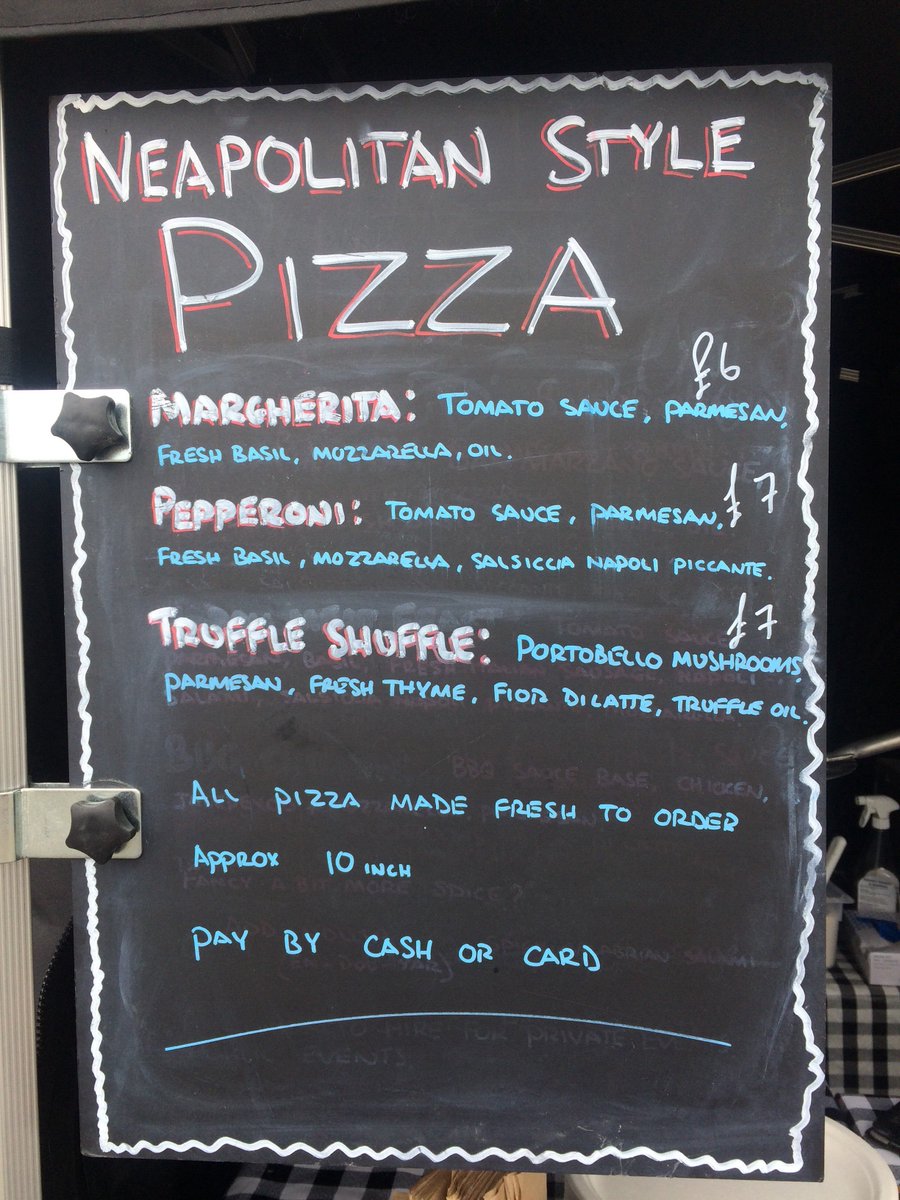 NEAPOLITAN STYLE
PIZZA
£6
MARGHERITA: TOMATO SAUCE, PARMESAN,
FRESH BASIL, MOZZARELLA, OIL.
£7
PEPPERONI: TOMATO SAUCE, PARMESAN,
FRESH BASIL, MOZZARELLA, SALSICCIA NAPOLI PICCANTE.
£7
TRUFFLE SHUFFLE: PORTOBELLO MUSHROOMS,
PARMESAN, FRESH THYME, FIOR DI LATTE, TRUFFLE OIL.
BBQ SAUCE BASE, CHICKEN,
ALL PIZZA MADE FRESH TO ORDER
APPROX 10 INCH
FANCY A BIT MORE SPICE?
PAY BY CASH OR CARD
FOR PRIVATE EVENTS